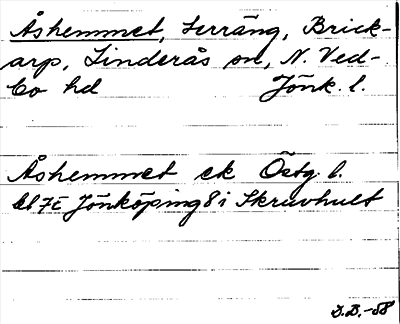 Åshemmet, Terräng, Brick-
arp, Linderås sn, N. Ved-
bo hd Jönk. l.
Åshemmet ek Östg. l.
bl 7E Jönköping 8 i Skruvhult
D.B.-58